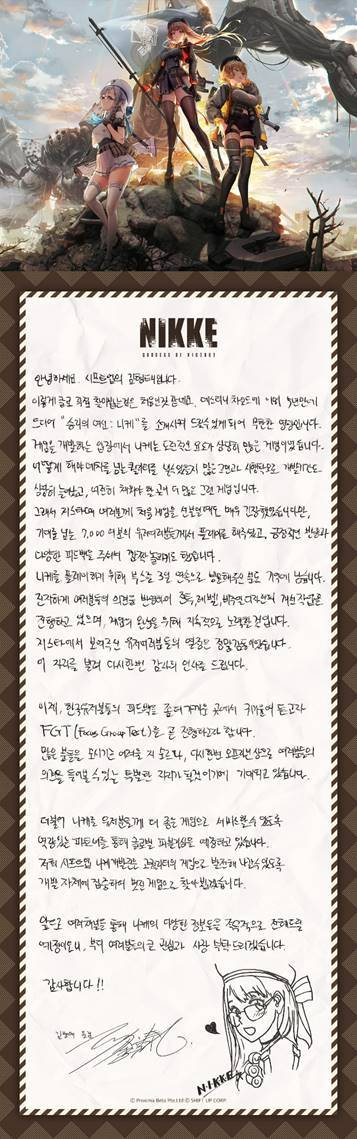 NIKKE
GODDESS OF VICTORY
안녕하세요. 시프트업의 김형태입니다.
이렇게 글로 직접 찾아뵙는 것은 처음인것 같네요. 데스티니 차일드에 이어 5년만에
드디어 "승리의 여신: 니케"를 소개시켜 드릴수 있게 되어 무한한 영광입니다.
게임을 개발하는 입장에서 니케는 도전적인 요소가 상당히 많은 게임이었습니다.
많은 고민과 시행착오로 개발기간도
상당히 늘어났고, 더 많은 그런 게임입니다.
그래서 지스타에서 여러분께 처음 게임을 선보일때도 매우 긴장했었습니다만,
기대를 넘는 7,000 여분의 유저여러분들께서 플레이를 해주셨고, 긍정적인 반응과
다양한 피드백을 주셔서 깜짝 놀라기도 했습니다.
니케를 플레이하기 위해 부스를 3일 연속으로 방문해주신 분도 기억에 남습니다.
진지하게 여러분들의 의견을 반영하여 개선 작업을
진행하고 있으며, 게임의 완성을 위해 지속적으로 노력할 것입니다.
지스타에서 보여주신 유저여러분들의 열정은 정말 감동이었습니다.
이 자리를 빌려 다시한번 감사의 인사를 드립니다.
이제, 한국유저분들의 피드백을 좀더 가까운 곳에서 귀기울여 듣고자
FGT (Focus Group Test)를 곧 진행하고자 합니다.
많은 분들을 모시기는 여러울 지 모르나, 다시한번 오프라인상으로 여러분들의
의견을 들어볼 수 있는 특별한 자리가 될것이기에 기대되고 있습니다.
더불어 니케를 유저분들께 더 좋은 게임으로 서비스할수 있도록
역량있는 파트너를 통해 글로벌 퍼블리싱을 예정하고 있습니다.
저희 시프트업 니케개발진은 고퀄리티의 게임으로 발전해 나갈수 있도록
개발 자체에 집중하여 멋진 게임으로 찾아뵙겠습니다.
앞으로 여러채널을 통해 니케의 다양한 정보들을 적극적으로 전해드릴
예정이오니, 부디 여러분들의 큰 관심과 사랑 부탁드리겠습니다.
감사합니다!!
김형태 드림
NIKKE
© Proxima Beta Pte.Ltd © SHIFT UP CORP.